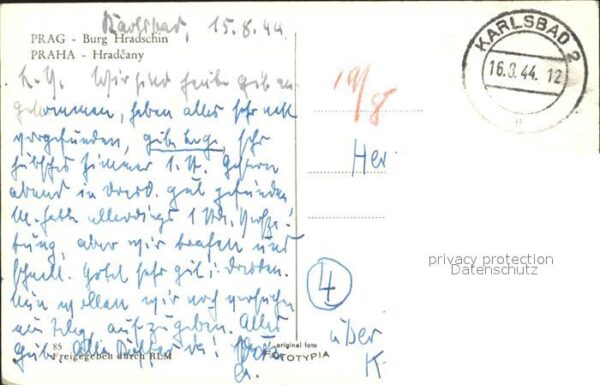 Karlsbad, 15.8.44.
PRAG - Burg Hradschin
PRAHA - Hradčany
L. Wir sind heute gut an
gekommen, haben alles sehr nett
vorgefunden, gute Lage, sehr
hübsches Zimmer 1. St. Gestern
abend in Dresd. gut gefunden
M. hatte allerdings 1 Std.
tung, aber wir trafen uns
schnell. Hotel sehr gut i. Dresden.
Nun wollen wir noch versuchen
ein Telegr. aufzugeben. Alles
Gute
85
Freigegeben durch RLM
original foto
FOTOTYPIA
19/8
Her
4
über
K
KARLSBAD 2
16.8.44. 12
e
privacy protection
Datenschutz